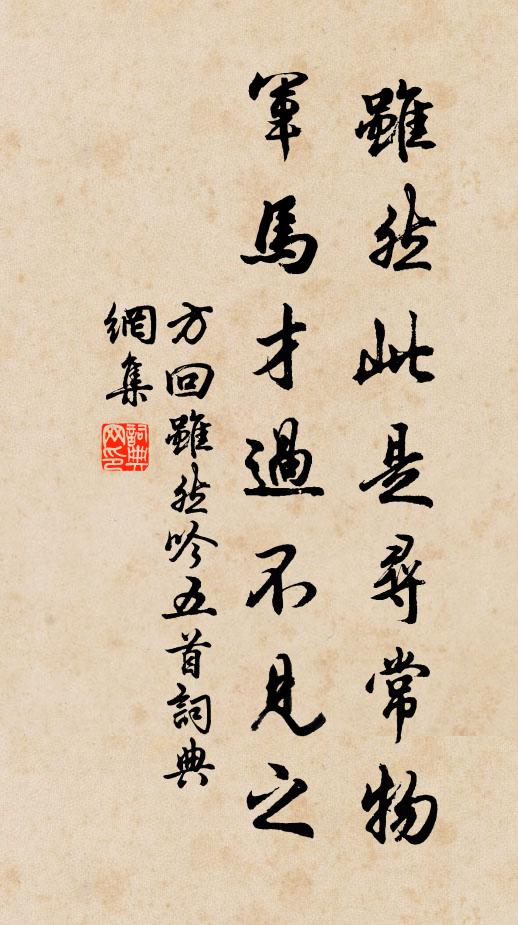 雖然此是尋常物
軍馬才過不見之
方回雖然吟五首詞典
網集
詞典
网印